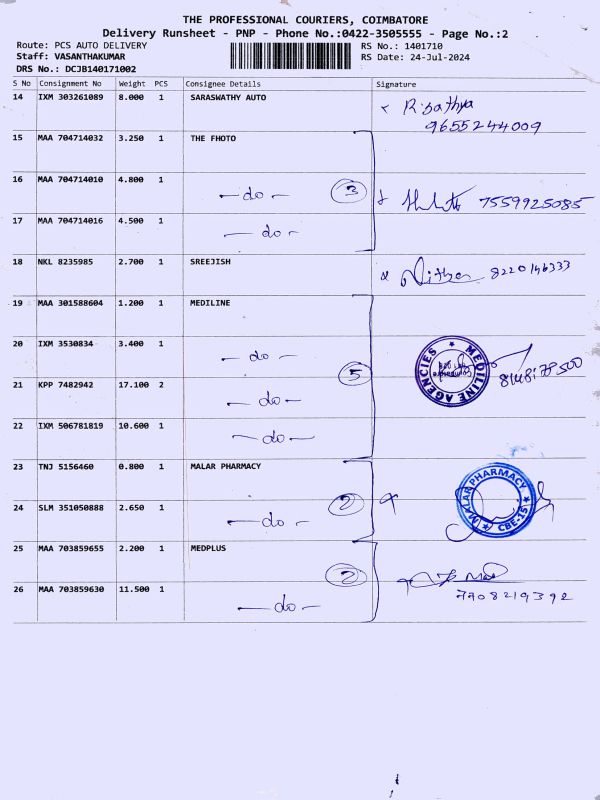 THE PROFESSIONAL COURIERS, COIMBATORE
Delivery Runsheet - PNP - Phone No.:0422-3505555 - Page No.:2
Route: PCS AUTO DELIVERY RS No.: 1401710
Staff: VASANTHAKUMAR RS Date: 24-Jul-2024
DRS No.: DCJB140171002
S No Consignment No Weight PCS Consignee Details Signature
14 IXM 303261089 8.000 1 SARASWATHY AUTO R. Sathya
9655244009
15 MAA 704714032 3.250 1 THE FHOTO
16 MAA 704714010 4.800 1 —do— 3 7559925085
17 MAA 704714016 4.500 1 —do—
18 NKL 8235985 2.700 1 SREEJISH 8220146333
19 MAA 301588604 1.200 1 MEDILINE
20 IXM 3530834 3.400 1 —do— MEDILINE AGENCIES
21 KPP 7482942 17.100 2 —do— 5
22 IXM 506781819 10.600 1 —do—
23 TNJ 5156460 0.800 1 MALAR PHARMACY
24 SLM 351050888 2.650 1 —do— 2 MALAR PHARMACY CBE-15
25 MAA 703859655 2.200 1 MEDPLUS 2
26 MAA 703859630 11.500 1 —do— 7708219392